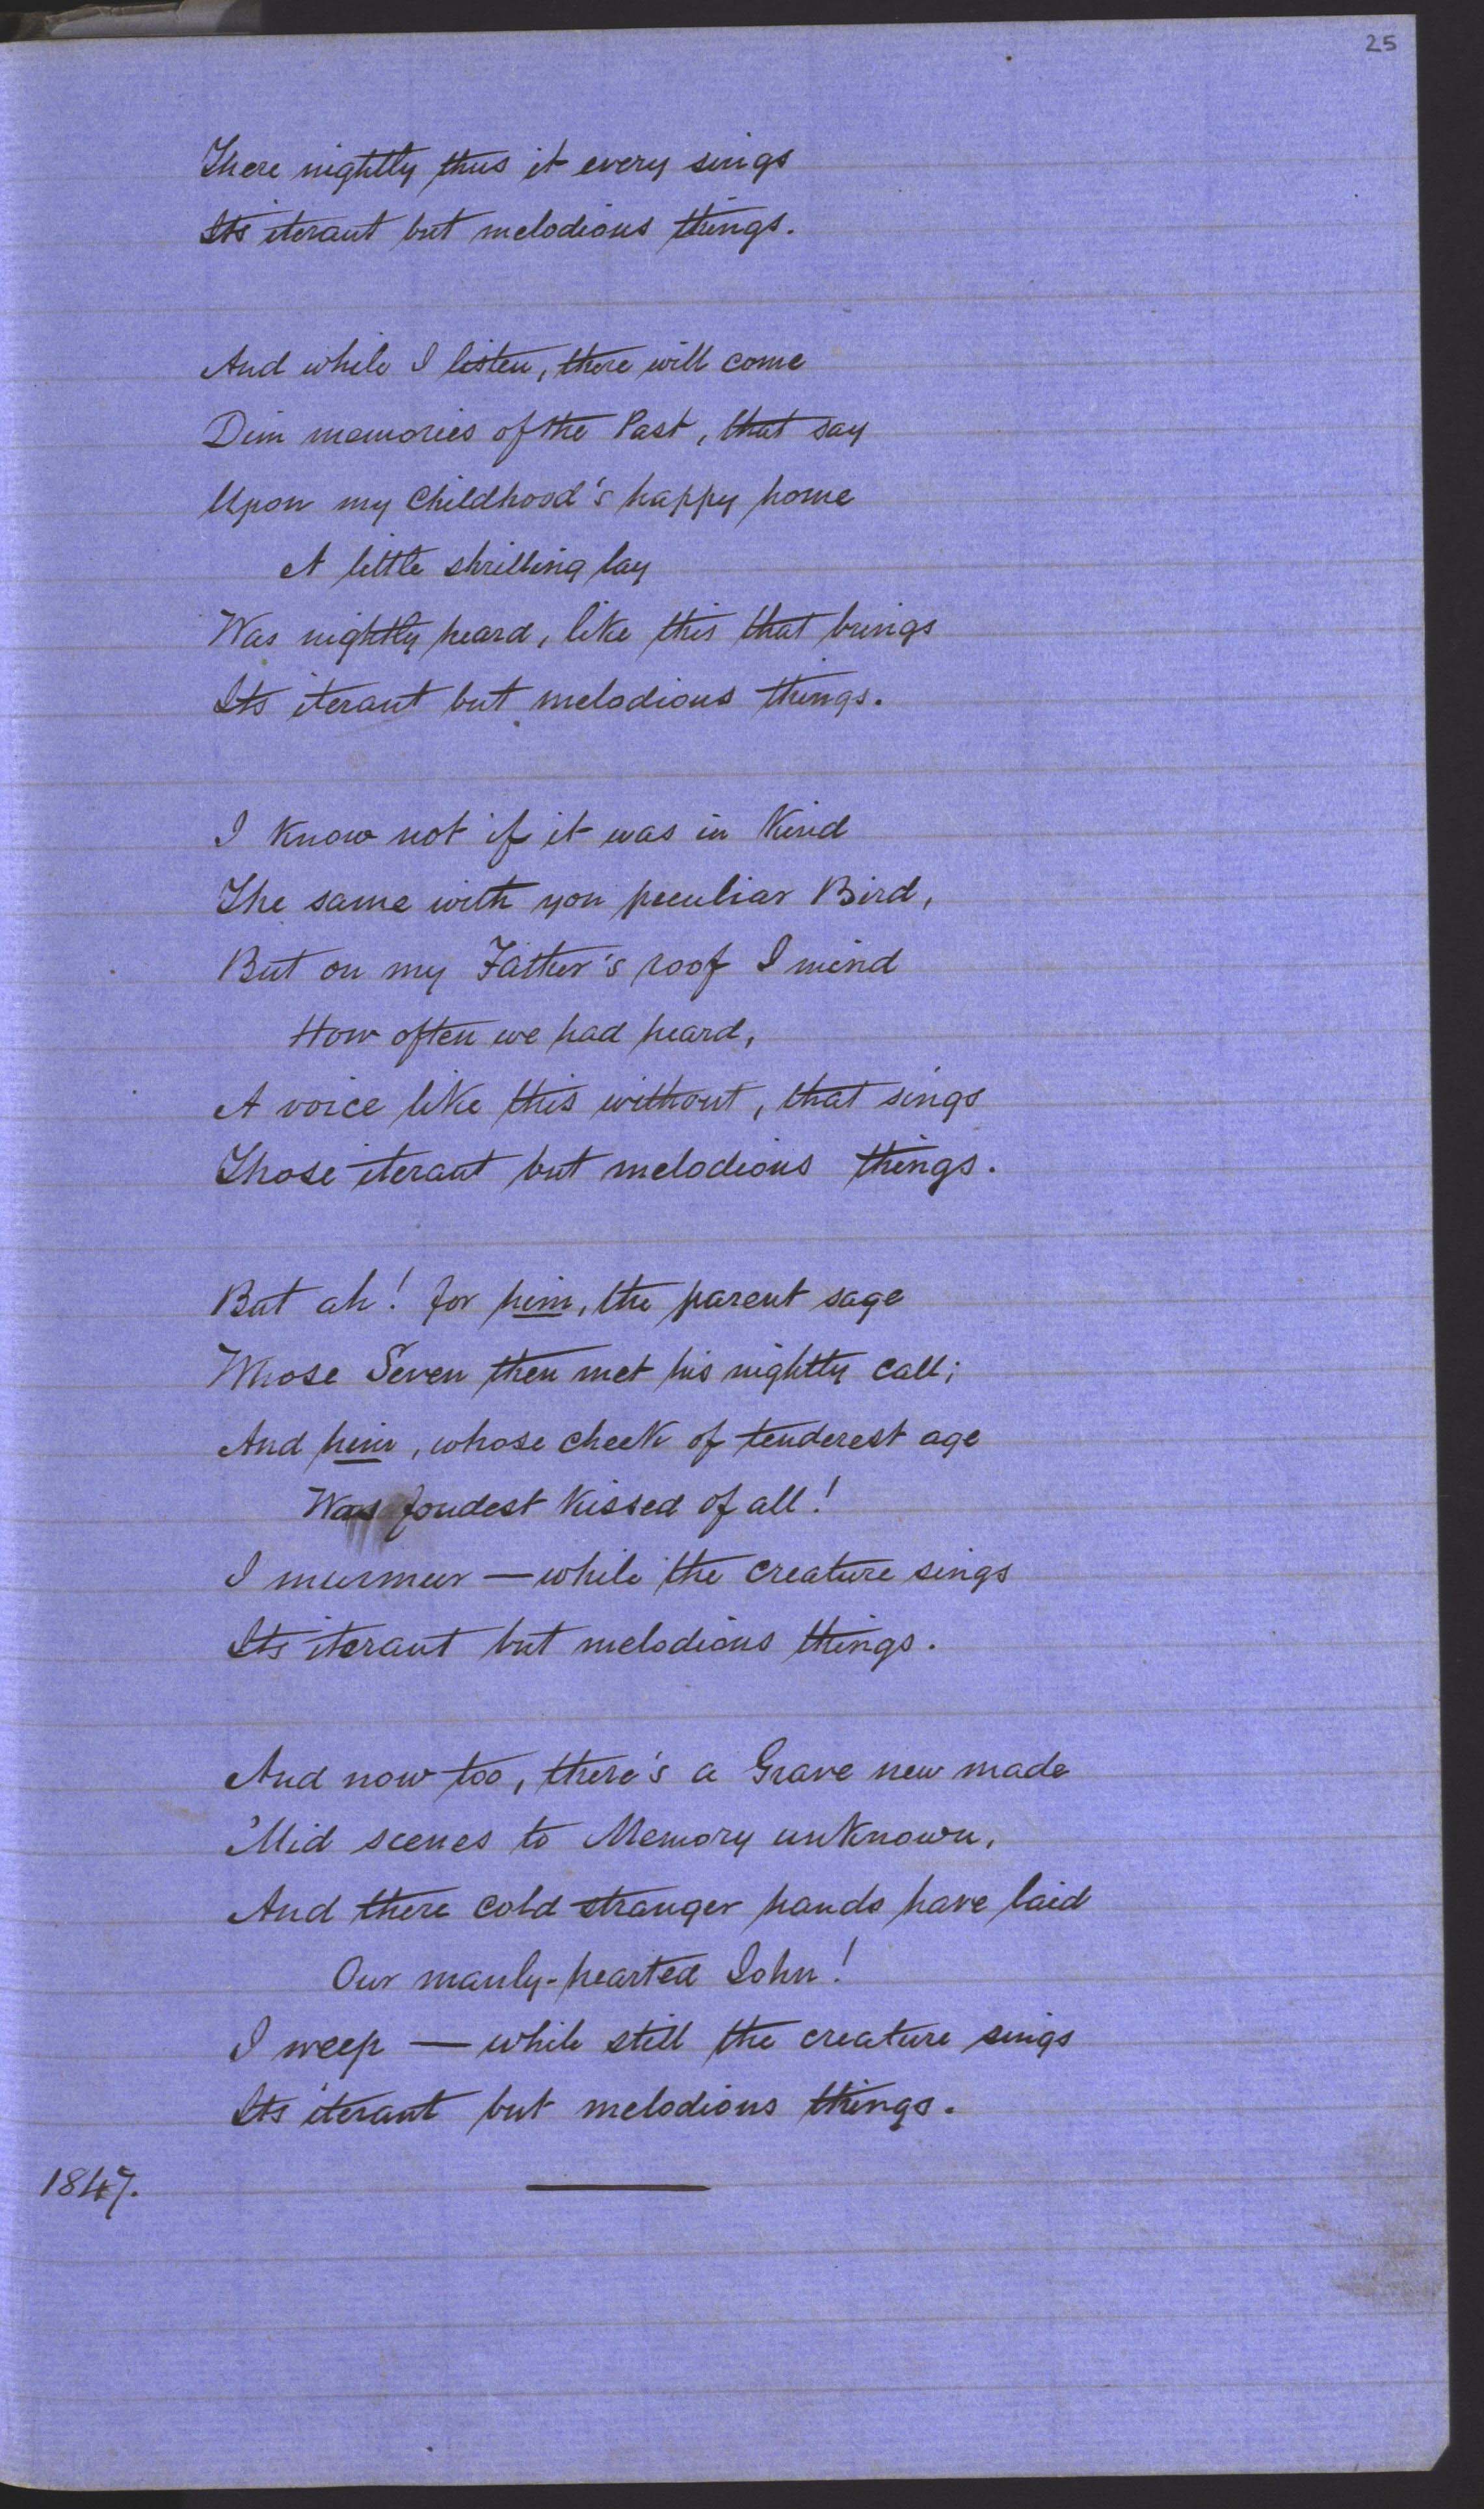 25
There nightly thus it every sings
Its iterant but melodious things.
And while I listen, there will come
Dim memories of the Past, that say
Upon my Childhood's happy home
A little shrilling lay
Was nightly heard, like this that brings
Its iterant but melodious things.
I Know not if it was in Kind
The same with yon peculiar Bird,
But on my Father's roof I mind
How often we had heard,
A voice like this without, that sings
Those iterant but melodious things.
But ah! for him, the parent sage
Whose Seven then met his nightly call;
And him, whose cheek of tenderest age
Was fondest Kissed of all!
I murmur — while the creature sings
Its iterant but melodious things.
And now too, there's a Grave new made
'Mid scenes to Memory unknown,
And there cold stranger hands have laid
Our manly-hearted John!
I weep — while still the creature sings
Its iterant but melodious things.
1847.